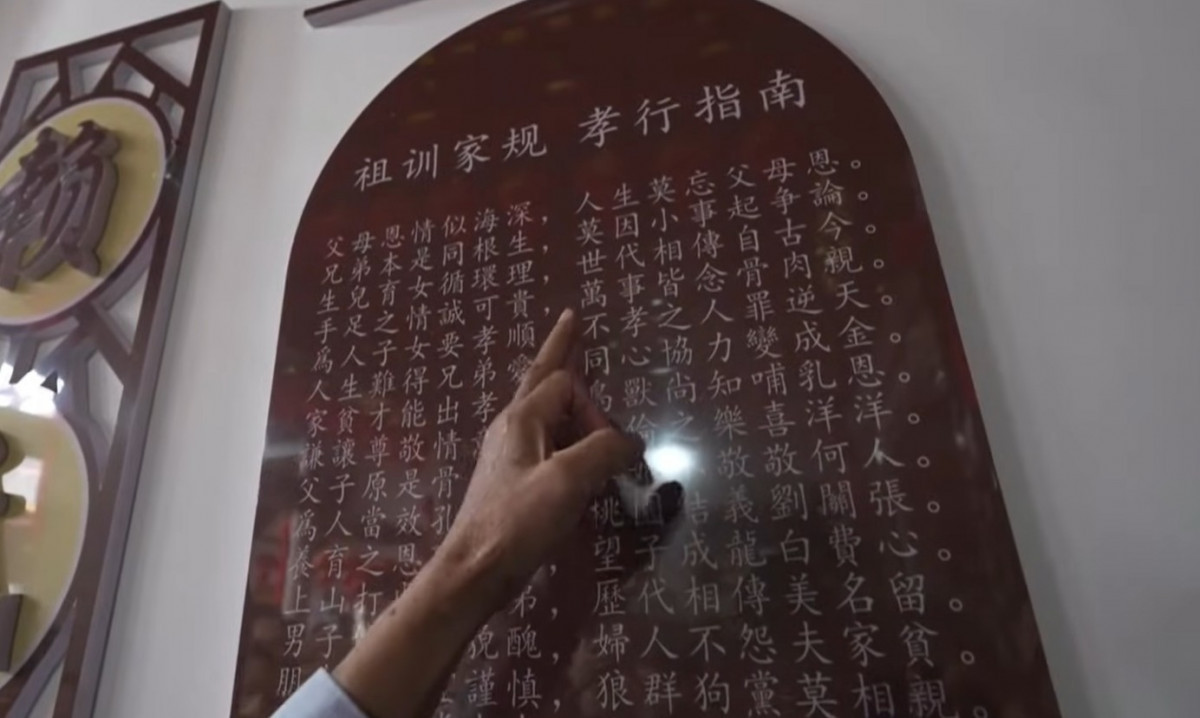 赖
祖训家规 孝行指南
父母恩情似海深，人生莫忘父母恩。
兄弟本是同根生，莫因小事起争論。
生兒育女循環理，世代相傳自古今。
手足之情誠可貴，萬事皆念骨肉親。
爲人子女要孝順，不孝之人罪逆天。
人生難得兄弟愛 同心協力變成金。
家貧才能出孝 獸尚知哺乳恩。
謙讓尊敬情 之樂喜洋洋。
父子原是骨 敬敬何人。
爲人當效孔 桃 結義劉關張。
養育之恩 望子成龍白費心。
上山打 弟，歷代相傳美名留。
男子 貌醜，婦人不怨夫家貧。
朋 謹慎 狼群狗黨莫相親。